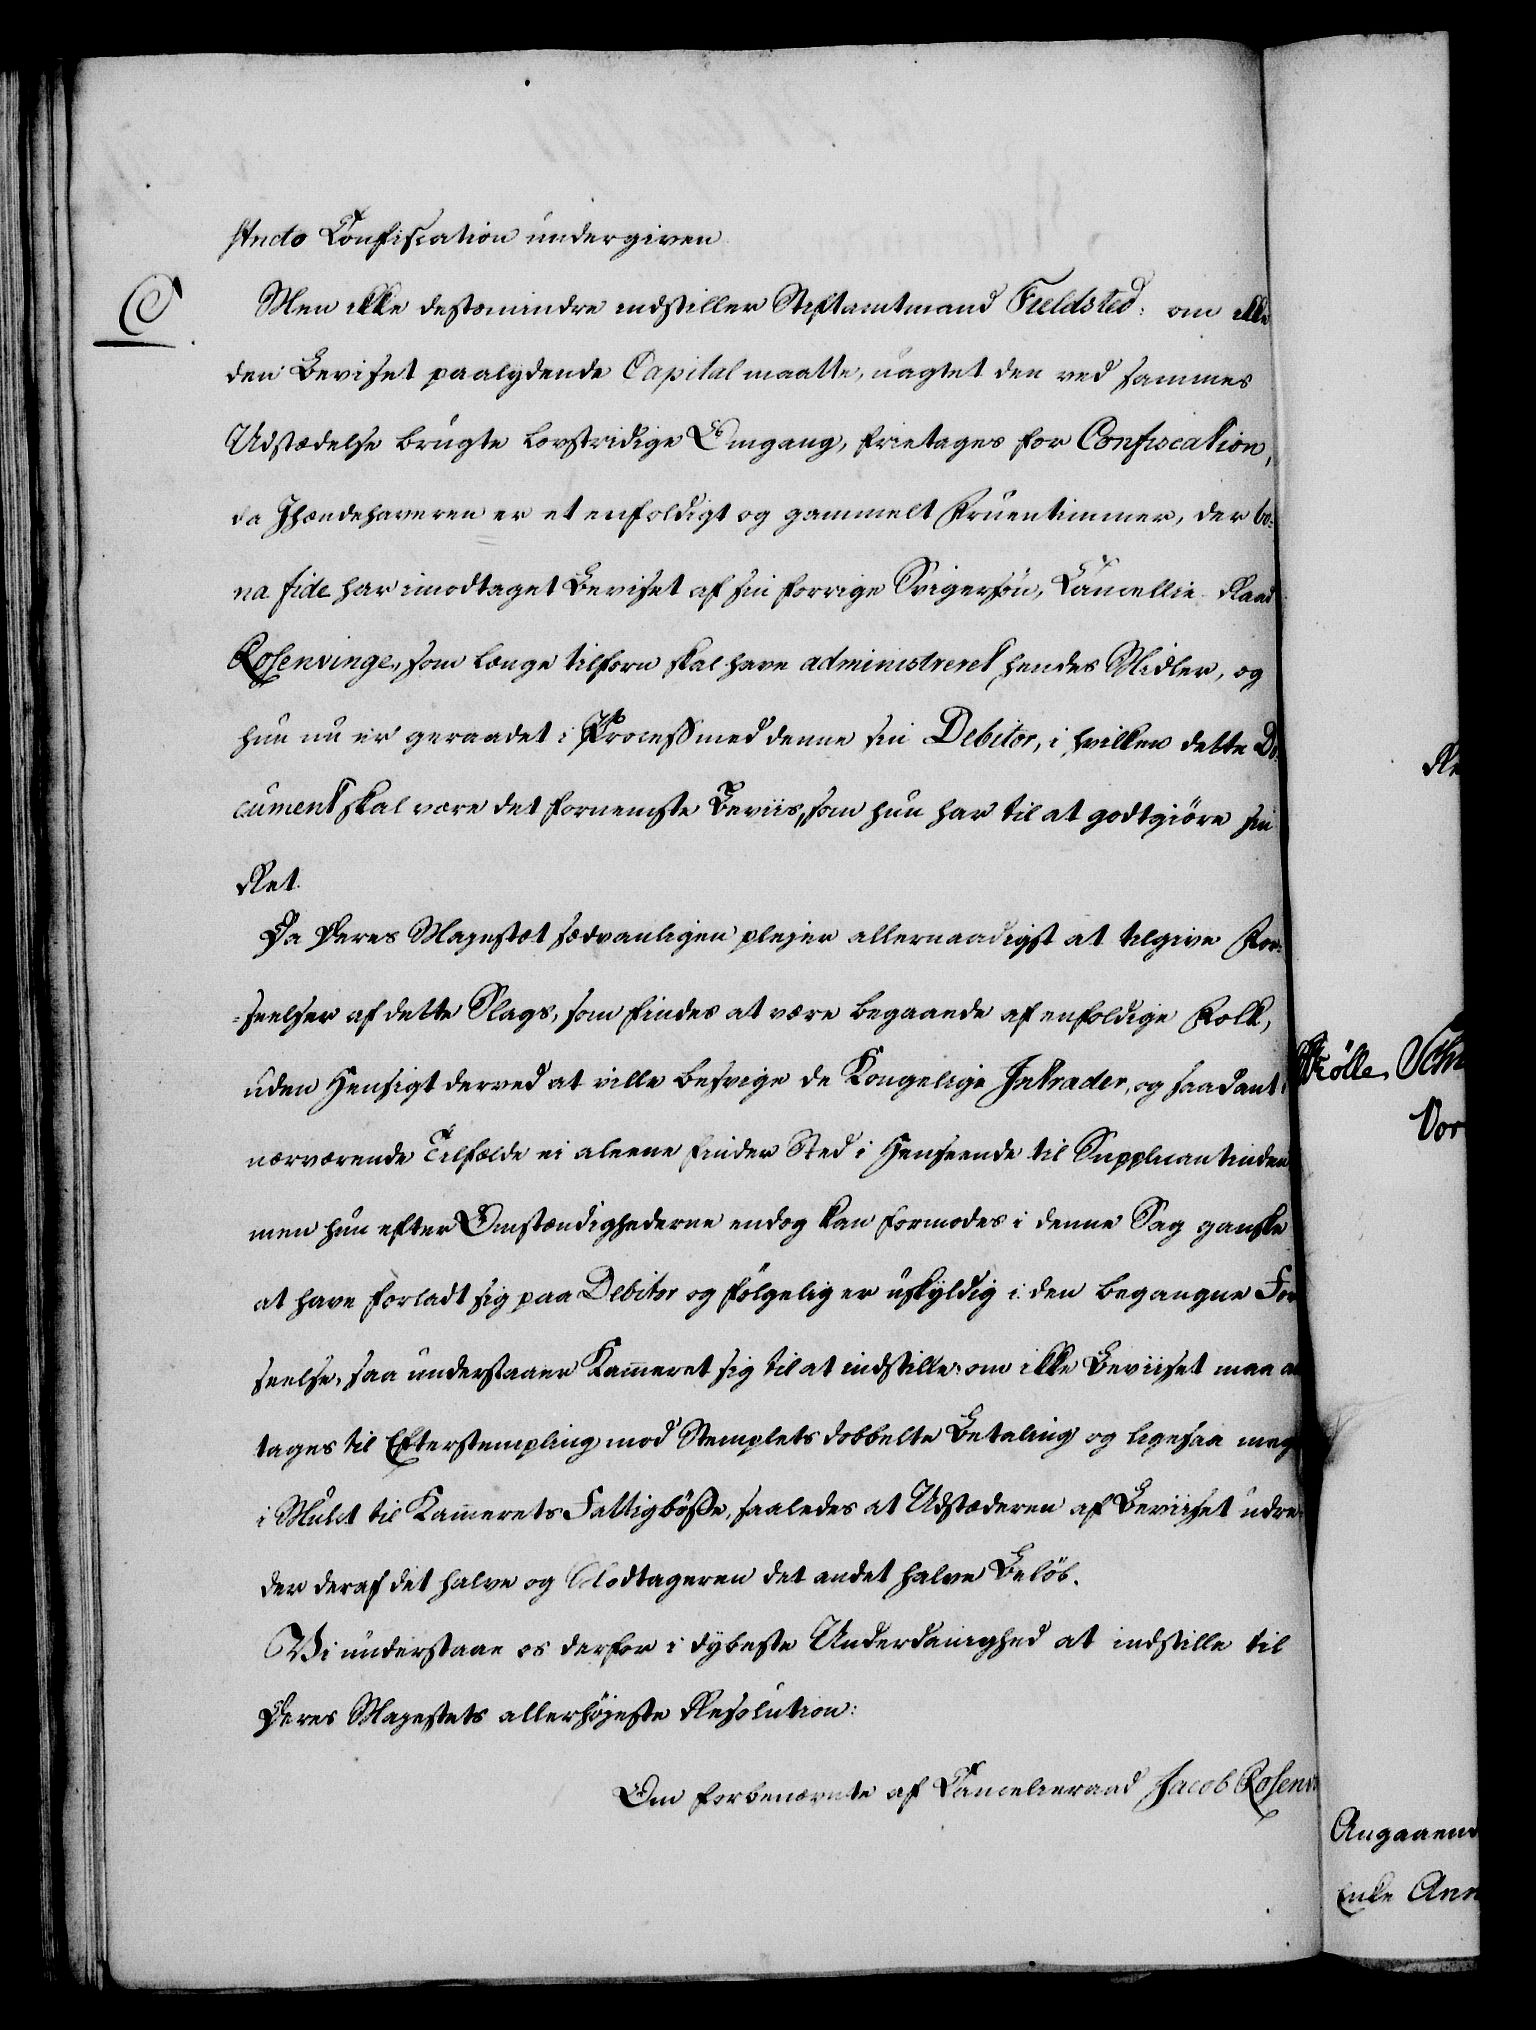 stncto Confiscation undergiven.
Men ikke destomindre indstiller Stiftamtmand Fieldsted: om ikke
den Beviset paalydende Capital maatte, uagtet den ved sammes
Udstædelse brugte lovstridige Omgang, frietages for Confiscation,
da Ihændehaveren er et enfoldigt og gammelt Fruentimmer, der bo-
na fide har imodtaget Beviset af sin forrige Svigersøn, Cancellie Raad
Rosenvinge, som længe tilforn skal have administreret hendes Midler, og
hun nu er geraadet i Process med denne sin Debitor, i hvilken dette Do-
cument skal være det fornemste Beviis, som hun har til at godtgiöre sin
Ret.
Da Deres Majestæt sædvanligen plejer allernaadigst at tilgive For-
-seelser af dette Slags, som findes at være begaaede af enfoldige Folk,
uden Hensigt derved at ville besvige de Kongelige Intrader, og saadant i
nærværende Tilfælde ei aleene finder Sted i Henseende til Supplicantinden
men hun efter Omstændighederne endog kan formodes i denne Sag ganske
at have forladt sig paa Debitor og fölgelig er uskyldig i den begangne For
seelse, saa understaaer Kam̄eret sig til at indstille: om ikke Beviiset maa an
tages til Efterstempling mod Stemplets dobbelte Betaling og ligesaa meg
i Mulct til Kam̄erets Fattigbösse, saaledes at Udstæderen af Beviiset udre-
der deraf det halve og Modtageren det andet halve Belöb.
Vi understaae os derfor i dybeste Underdanighed at indstille til
Deres Majestets allerhöjeste Resolution:
Om forbenævnte af Cancelieraad Jacob Rosenv
Krölle, Schr
Vor
Angaaen
Enke Ann